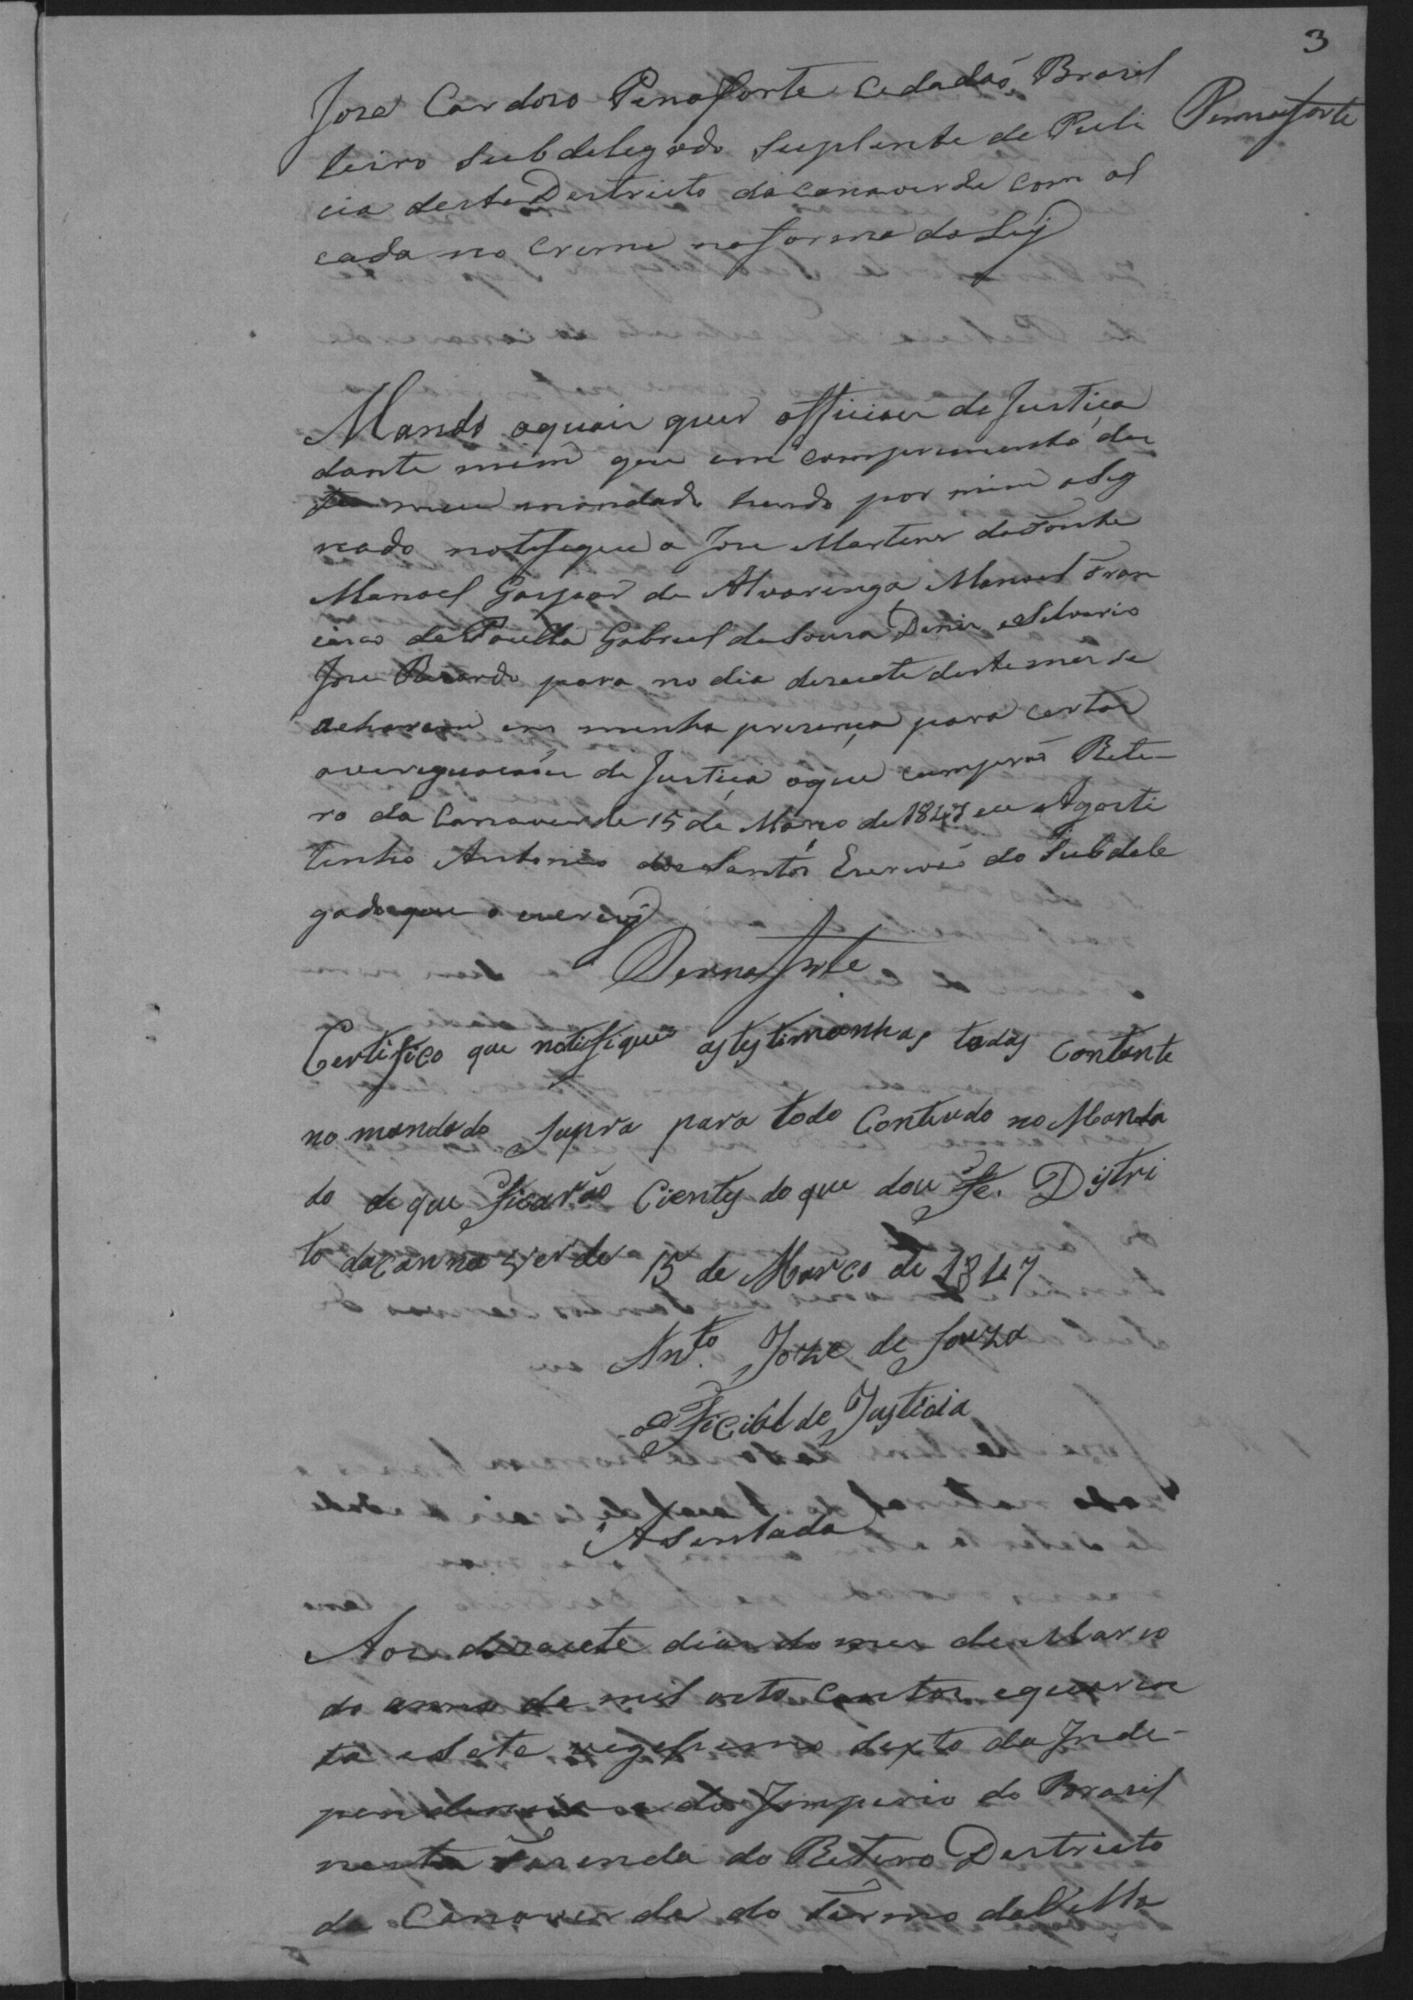 3
Pennaforte
Jose Cardozo Penaforte Cedadaõ Brasil
leiro Subdelegado Suplente de Puli
cia deste Destricto da canaverde com al
cada no Crime na forma da Leÿ
Mando aquair quer officiaes de Justiça
dante mim que em comprimento des
te meu mandado hendo por mim asig
nado notefique a Joze Martens da Fonte
Manoel Gaspar de Alvarenga Manoel Fran
cisco de Paulla Gabriel de Souza Deniz e Silverio
Joze Ricardo para no dia dezacete deste mes se
acharem em minha prezença para certas
averiguacoins de Justiça o que cumpraõ Rete-
ro da Canaverde 15 de Março de 1847 eu Agosti
tinho Antonio dos Santos Escrivaõ do Subdele
gado que o escreveÿ
Pennaforte
Certifico que notifiquei as testimonhas todas Contente
no mandado Supra para todo Contiudo no Manda
do de que ficarão Cientes do que dou Fe. Distri
to da canna verde 15 de Marco de 1847
An.to Joze de Souza
oficial de Justicia
Asentada
Aos dezacete dias do mes de Marco
do anno de mil oito centos e quaren
ta e Sete vegessimo Sexto da Inde-
pendencia e do Imperio do Brasil
nesta Fazenda do Retiro Destricto
da Canaverde do Termo da Villa